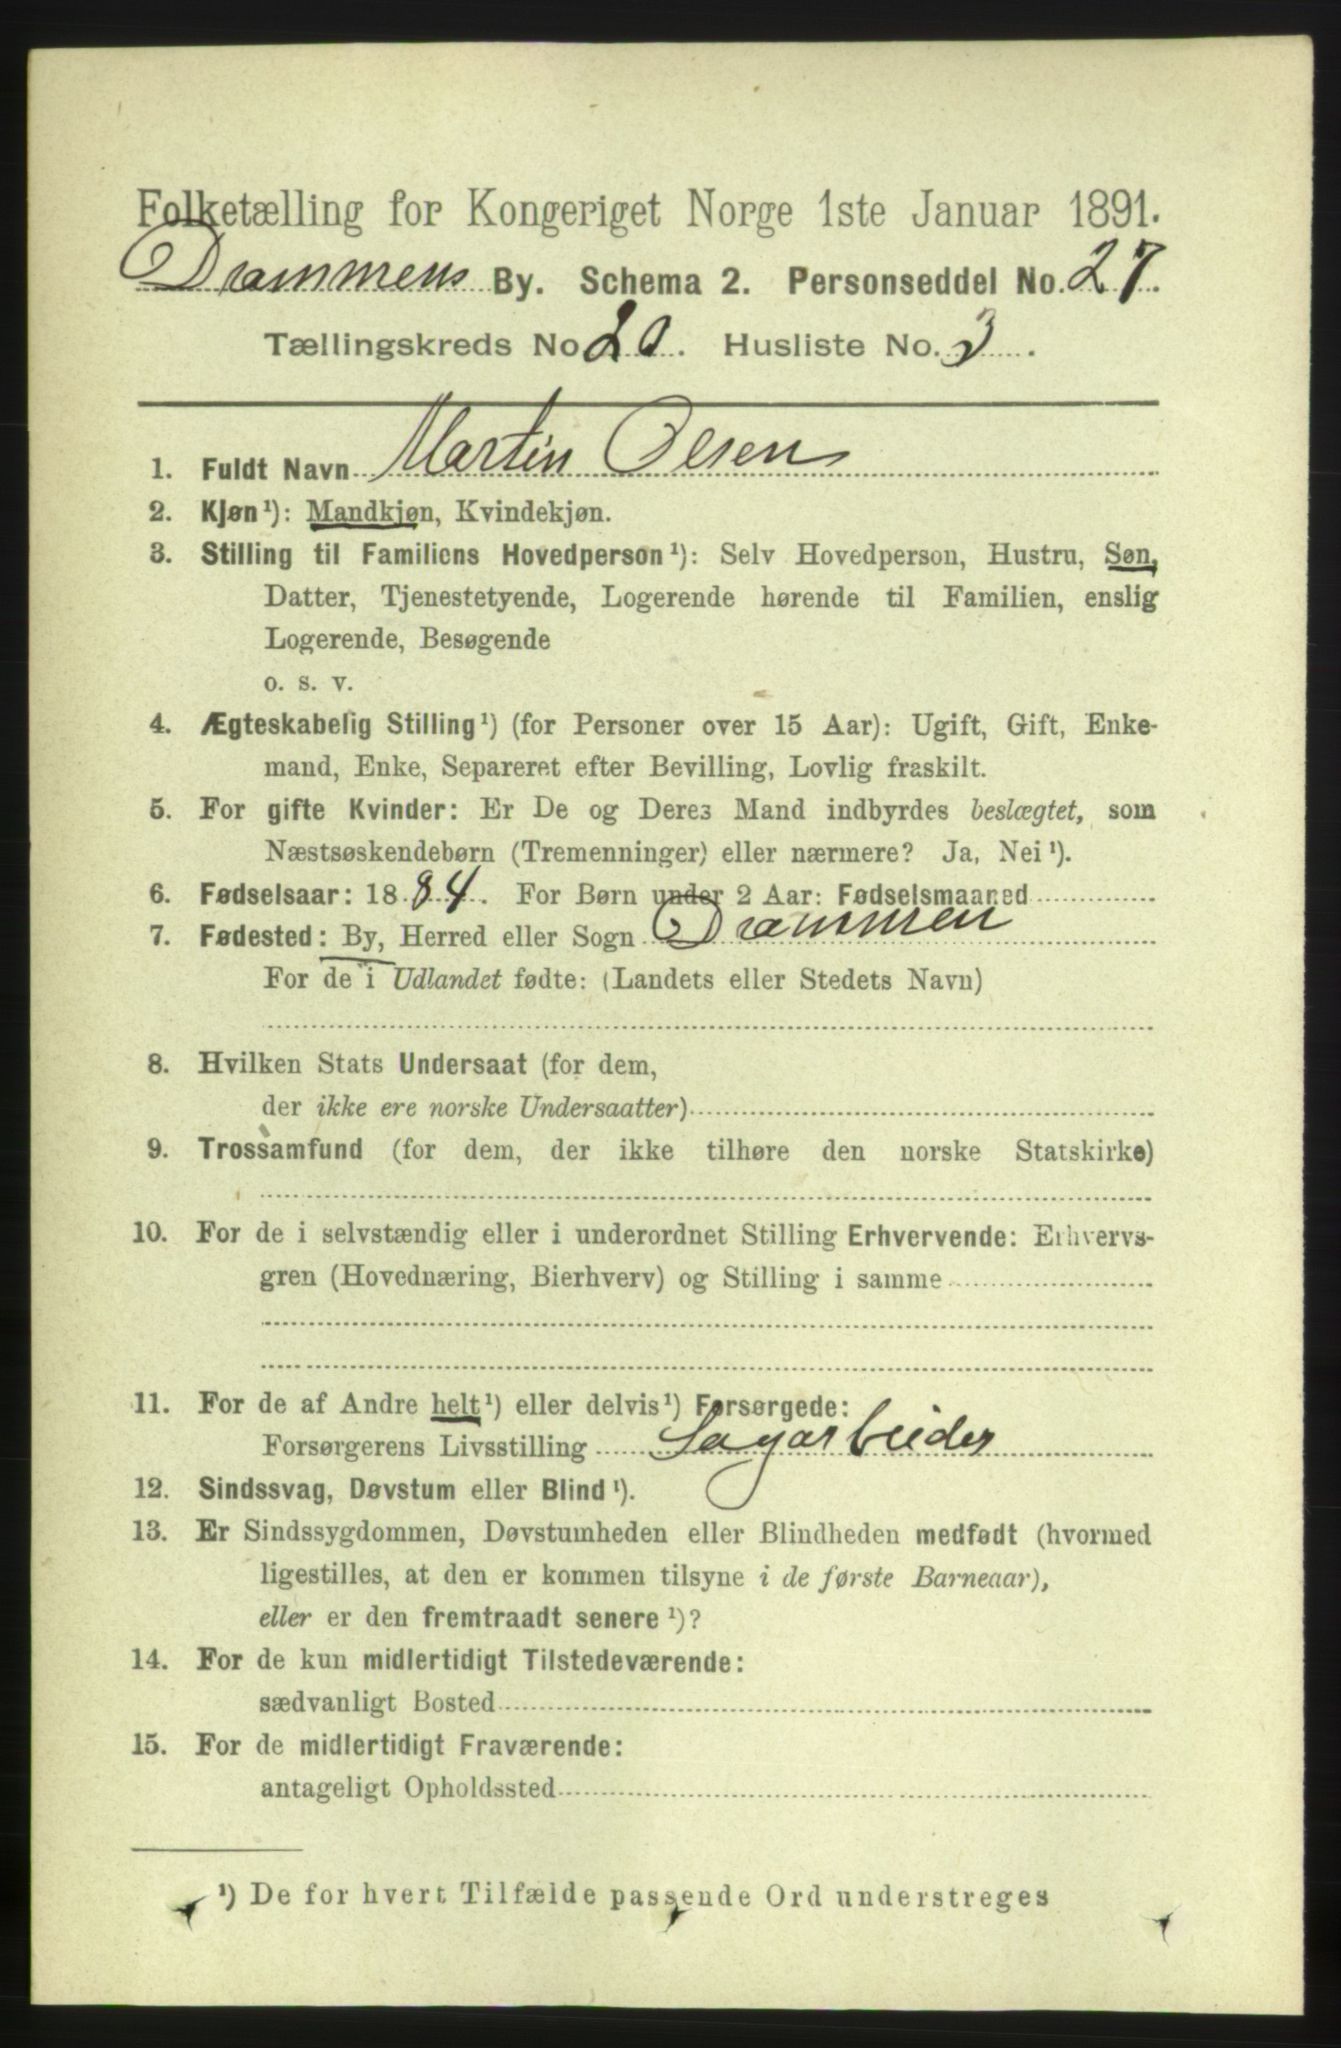 Folketælling for Kongeriget Norge 1ste Januar 1891.
Drammens By. Schema 2. Personseddel No. 27.
Tællingskreds No 20. Husliste No. 3.
1. Fuldt Navn Martin Olsen
2. Kjøn¹): Mandkjøn, Kvindekjøn.
3. Stilling til Familiens Hovedperson¹): Selv Hovedperson, Hustru, Søn,
Datter, Tjenestetyende, Logerende hørende til Familien, enslig
Logerende, Besøgende
o. s. v.
4. Ægteskabelig Stilling¹) (for Personer over 15 Aar): Ugift, Gift, Enke-
mand, Enke, Separeret efter Bevilling, Lovlig fraskilt.
5. For gifte Kvinder: Er De og Deres Mand indbyrdes beslægtet, som
Næstsøskendebørn (Tremenninger) eller nærmere? Ja, Nei¹).
6. Fødselsaar: 1884. For Børn under 2 Aar: Fødselsmaaned
7. Fødested: By, Herred eller Sogn Drammen
For de i Udlandet fødte: (Landets eller Stedets Navn)
8. Hvilken Stats Undersaat (for dem,
der ikke ere norske Undersaatter)
9. Trossamfund (for dem, der ikke tilhøre den norske Statskirke)
10. For de i selvstændig eller i underordnet Stilling Erhvervende: Erhvervs-
gren (Hovednæring, Bierhverv) og Stilling i samme
11. For de af Andre helt¹) eller delvis¹) Forsørgede:
Forsørgerens Livsstilling Sagarbeider
12. Sindssvag, Døvstum eller Blind¹).
13. Er Sindssygdommen, Døvstumheden eller Blindheden medfødt (hvormed
ligestilles, at den er kommen tilsyne i de første Barneaar),
eller er den fremtraadt senere¹)?
14. For de kun midlertidigt Tilstedeværende:
sædvanligt Bosted
15. For de midlertidigt Fraværende:
antageligt Opholdssted
¹) De for hvert Tilfælde passende Ord understreges